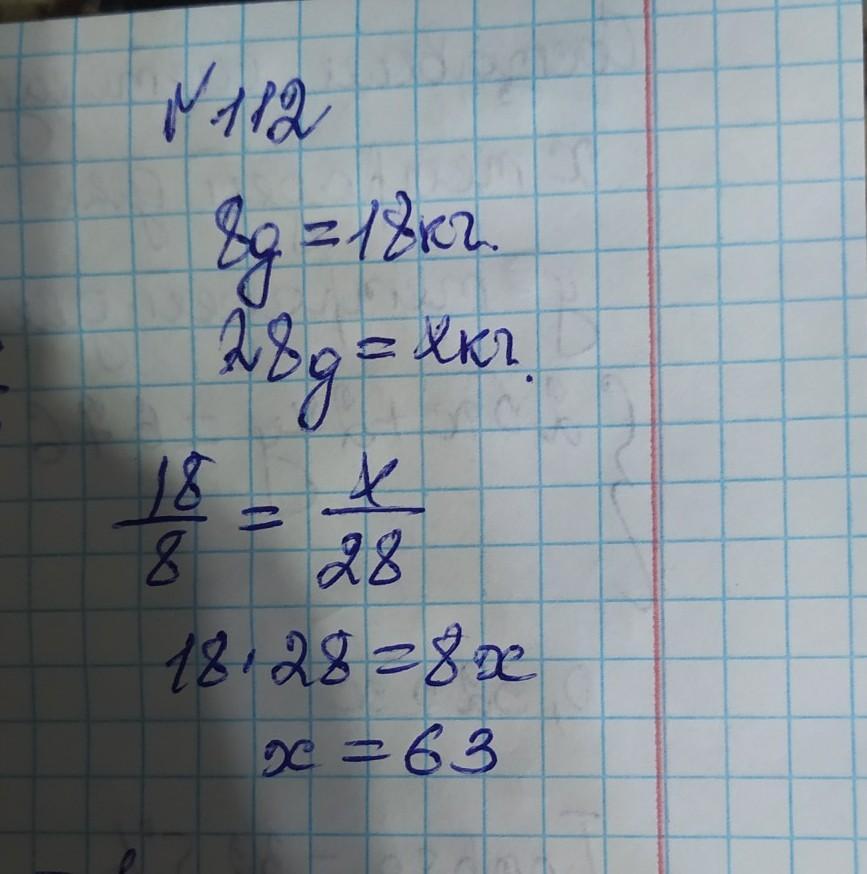 №112
8д = 18кг.
28д = xкг.
18/8 = x/28
18·28 = 8x
x = 63